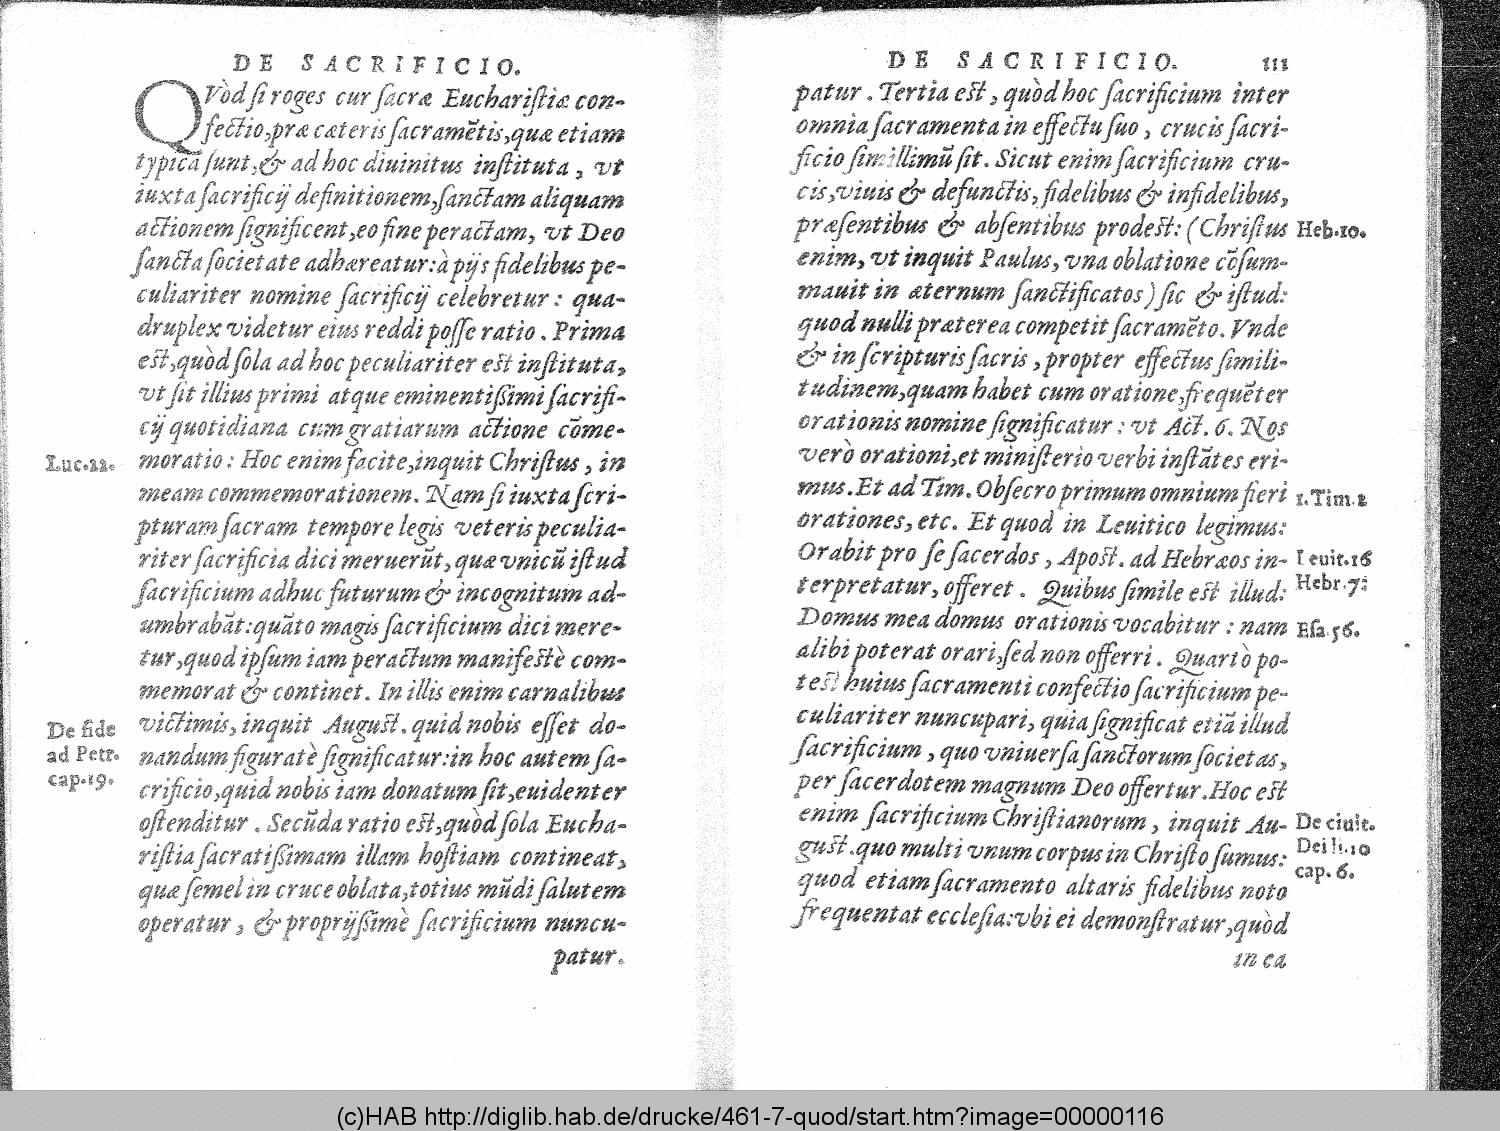 DE SACRIFICIO.
QVòd ſi roges cur ſacræ Euchariſtiæ con-
fectio, præ cæteris ſacramẽtis, quæ etiam
typica ſunt, & ad hoc diuinitus inſtituta, vt
iuxta ſacrificij definitionem, ſanctam aliquam
actionem ſignificent, eo fine peractam, vt Deo
ſancta ſocietate adhæreatur: à pijs fidelibus pe-
culiariter nomine ſacrificij celebretur: qua-
druplex videtur eius reddi poſſe ratio. Prima
eſt, quòd ſola ad hoc peculiariter eſt inſtituta,
vt ſit illius primi atque eminentiſsimi ſacrifi-
cij quotidiana cum gratiarum actione cõme-
Luc.22. moratio: Hoc enim facite, inquit Chriſtus, in
meam commemorationem. Nam ſi iuxta ſcri-
pturam ſacram tempore legis veteris peculia-
riter ſacrificia dici meruerũt, quæ vnicũ iſtud
ſacrificium adhuc futurum & incognitum ad-
umbrabãt: quãto magis ſacrificium dici mere-
tur, quod ipſum iam peractum manifeſtè com-
memorat & continet. In illis enim carnalibus
De fide victimis, inquit Auguſt. quid nobis eſſet do-
ad Petr. nandum figuratè ſignificatur: in hoc autem ſa-
cap.19. crificio, quid nobis iam donatum ſit, euidenter
oſtenditur. Secũda ratio eſt, quòd ſola Eucha-
riſtia ſacratiſsimam illam hoſtiam contineat,
quæ ſemel in cruce oblata, totius mũdi ſalutem
operatur, & proprijſsimè ſacrificium nuncu-
patur.
DE SACRIFICIO. 111
patur. Tertia eſt, quòd hoc ſacrificium inter
omnia ſacramenta in effectu ſuo, crucis ſacri-
ficio ſimillimũ ſit. Sicut enim ſacrificium cru-
cis, viuis & defunctis, fidelibus & infidelibus,
præſentibus & abſentibus prodeſt: (Chriſtus Heb.10.
enim, vt inquit Paulus, vna oblatione cõſum-
mauit in æternum ſanctificatos) ſic & iſtud:
quod nulli præterea competit ſacramẽto. Vnde
& in ſcripturis ſacris, propter effectus ſimili-
tudinem, quam habet cum oratione, frequẽter
orationis nomine ſignificatur: vt Act. 6. Nos
verò orationi, et miniſterio verbi inſtãtes eri-
mus. Et ad Tim. Obſecro primum omnium fieri 1.Tim.2
orationes, etc. Et quod in Leuitico legimus:
Orabit pro ſe ſacerdos, Apoſt. ad Hebræos in- Leuit.16
terpretatur, offeret. Quibus ſimile eſt illud: Hebr.7:
Domus mea domus orationis vocabitur: nam Eſa.56.
alibi poterat orari, ſed non offerri. Quartò po-
teſt huius ſacramenti confectio ſacrificium pe-
culiariter nuncupari, quia ſignificat etiã illud
ſacrificium, quo vniuerſa ſanctorum ſocietas,
per ſacerdotem magnum Deo offertur. Hoc eſt
enim ſacrificium Chriſtianorum, inquit Au- De ciuit.
guſt. quo multi vnum corpus in Chriſto ſumus: Dei li.10
quod etiam ſacramento altaris fidelibus noto cap. 6.
frequentat eccleſia: vbi ei demonſtratur, quòd
in ea
(c)HAB http://diglib.hab.de/drucke/461-7-quod/start.htm?image=00000116